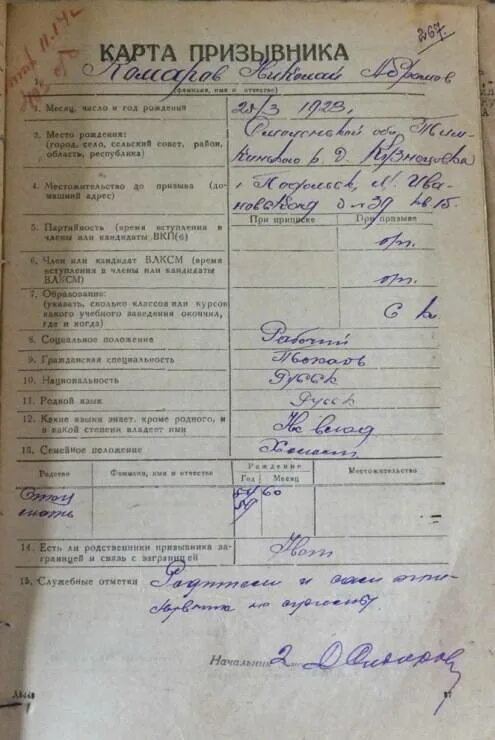 267.
КАРТА ПРИЗЫВНИКА
Комаров Николай Абрамов
(фамилия, имя и отчество)
1. Месяц, число и год рождения
25/3 1923,
2. Место рождения:
(город, село, сельский совет, район,
область, республика)
Смоленской обл.
р. д. Кузнецовка
4. Местожительство до призыва (до-
машний адрес)
г. Подольск, М. Ива-
новская д. № 39 кв. 15.
При приписке При призыве
5. Партийность (время вступления в
члены или кандидаты ВКП(б)
6. Член или кандидат ВЛКСМ (время
вступления в члены или кандидаты
ВЛКСМ)
7. Образование:
(указать, сколько классов или курсов
какого учебного заведения окончил,
где и когда)
6 кл.
8. Социальное положение
Рабочий
9. Гражданская специальность
10. Национальность
Русск
11. Родной язык
Русск
12. Какие языки знает, кроме родного, и
в какой степени владеет ими
Не влад
13. Семейное положение
Холост
Родство Фамилия, имя и отчество Рождение Местожительство
Год Месяц
Отец
мать
14. Есть ли родственники призывника за-
границей и связь с заграницей
Нет
15. Служебные отметки
Родители и сам
Начальник 2